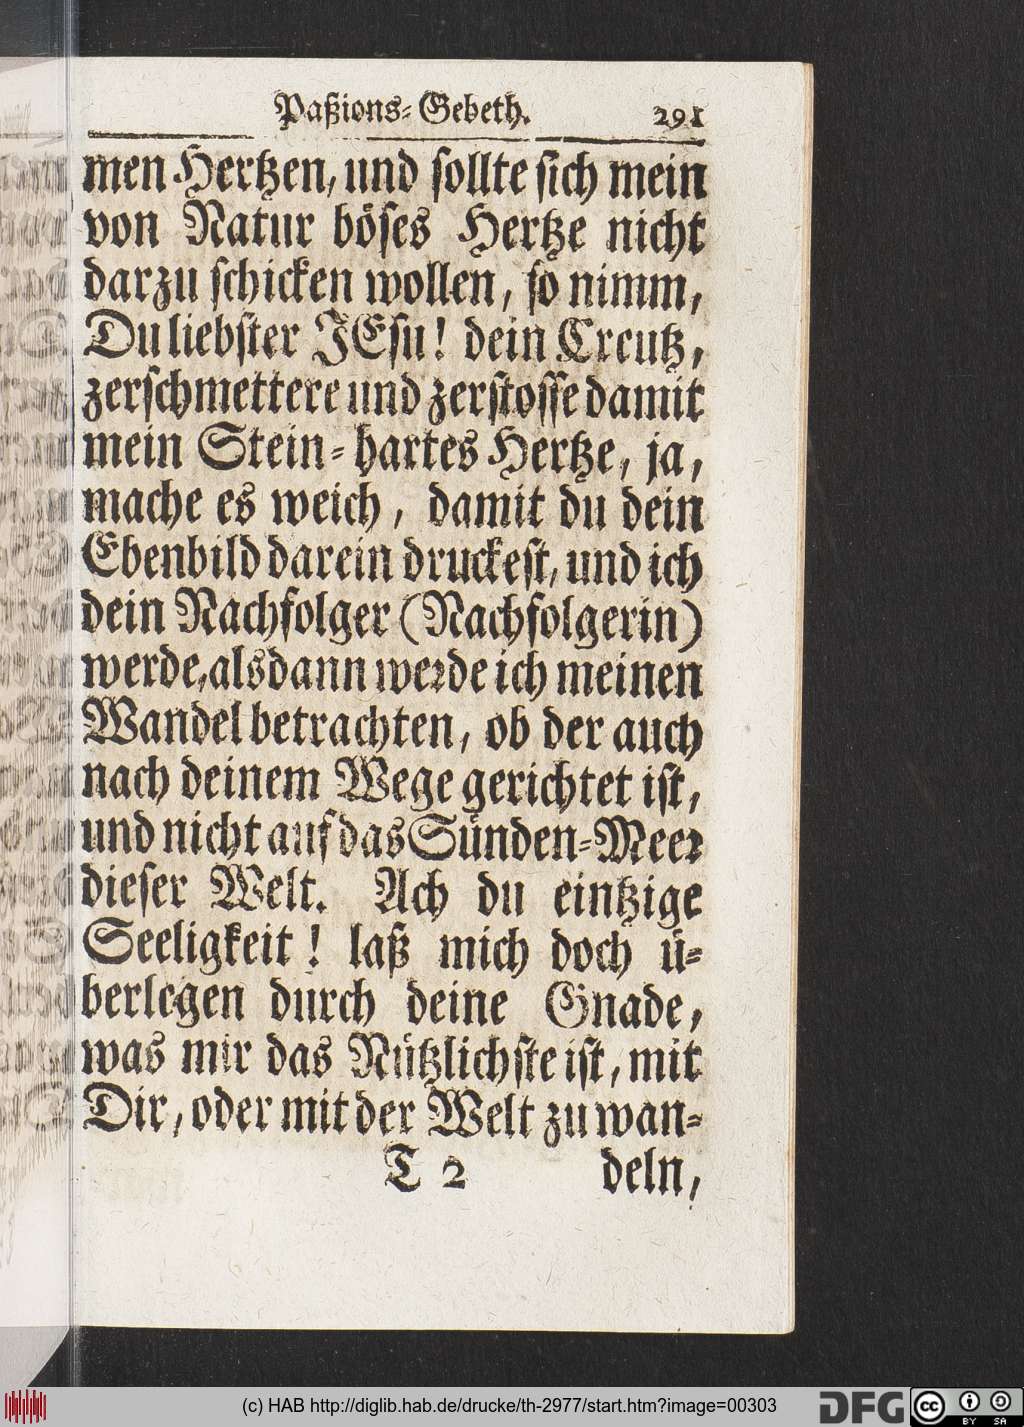 Paßions-Gebeth. 291
men Hertzen, und sollte sich mein
von Natur böses Hertze nicht
darzu schicken wollen, so nimm,
Du liebster JEsu! dein Creutz,
zerschmettere und zerstosse damit
mein Stein-hartes Hertze, ja,
mache es weich, damit du dein
Ebenbild darein druckest, und ich
dein Nachfolger (Nachfolgerin)
werde, alsdann werde ich meinen
Wandel betrachten, ob der auch
nach deinem Wege gerichtet ist,
und nicht auf das Sünden-Meer
dieser Welt. Ach du eintzige
Seeligkeit! laß mich doch ü-
berlegen durch deine Gnade,
was mir das Nützlichste ist, mit
Dir, oder mit der Welt zu wan-
T 2 deln,
(c) HAB http://diglib.hab.de/drucke/th-2977/start.htm?image=00303
DFG
cc BY SA